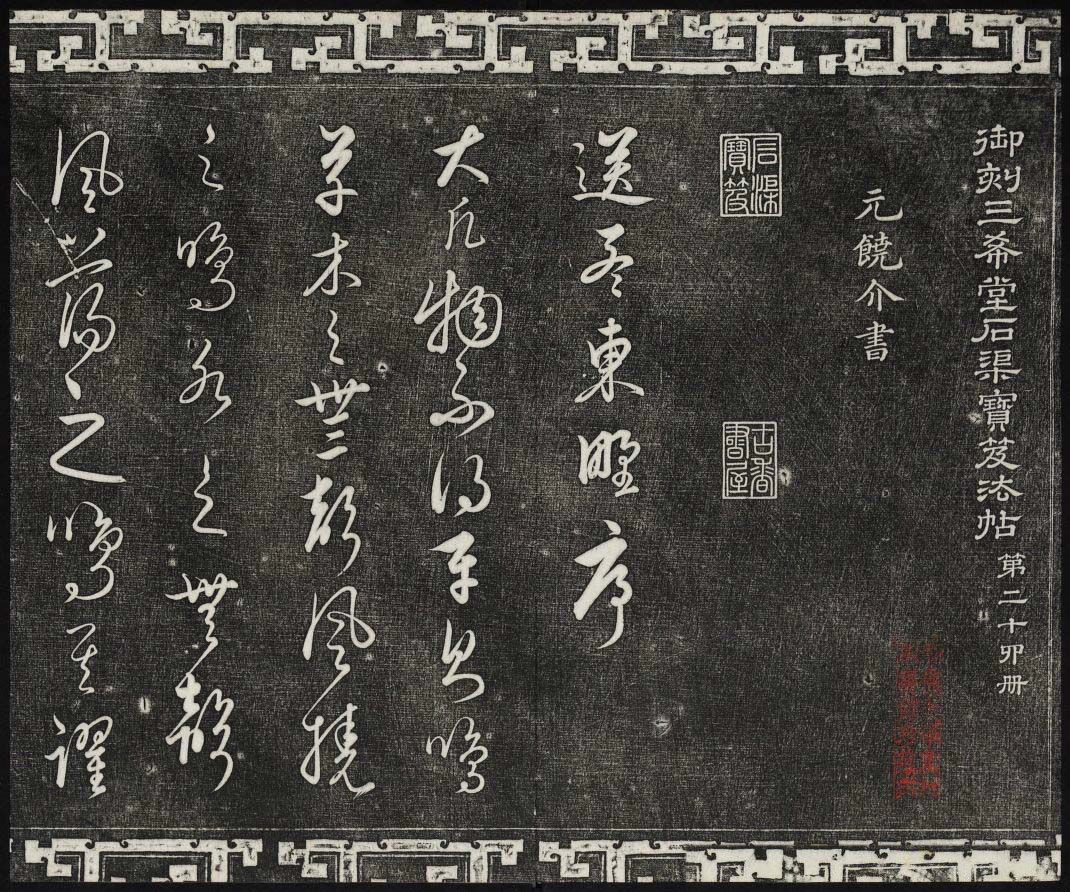 御刻三希堂石渠寶笈法帖 第二十卯冊
元饒介書
石渠寶笈
古香書屋
送孟東野序
大凡物不得平則鳴
草木之無聲風撓
之鳴水之無聲
風蕩之鳴其躍